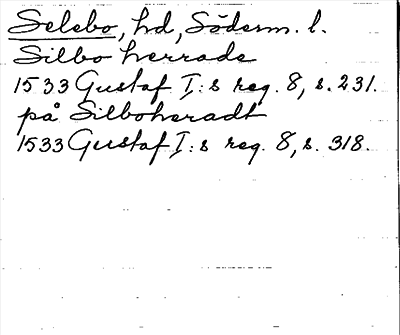 Selebo, hd, Söderm. l.
Silbo herrade
1533 Gustaf I:s reg. 8, s. 231.
på Silboheradt
1533 Gustaf I:s reg. 8, s. 318.